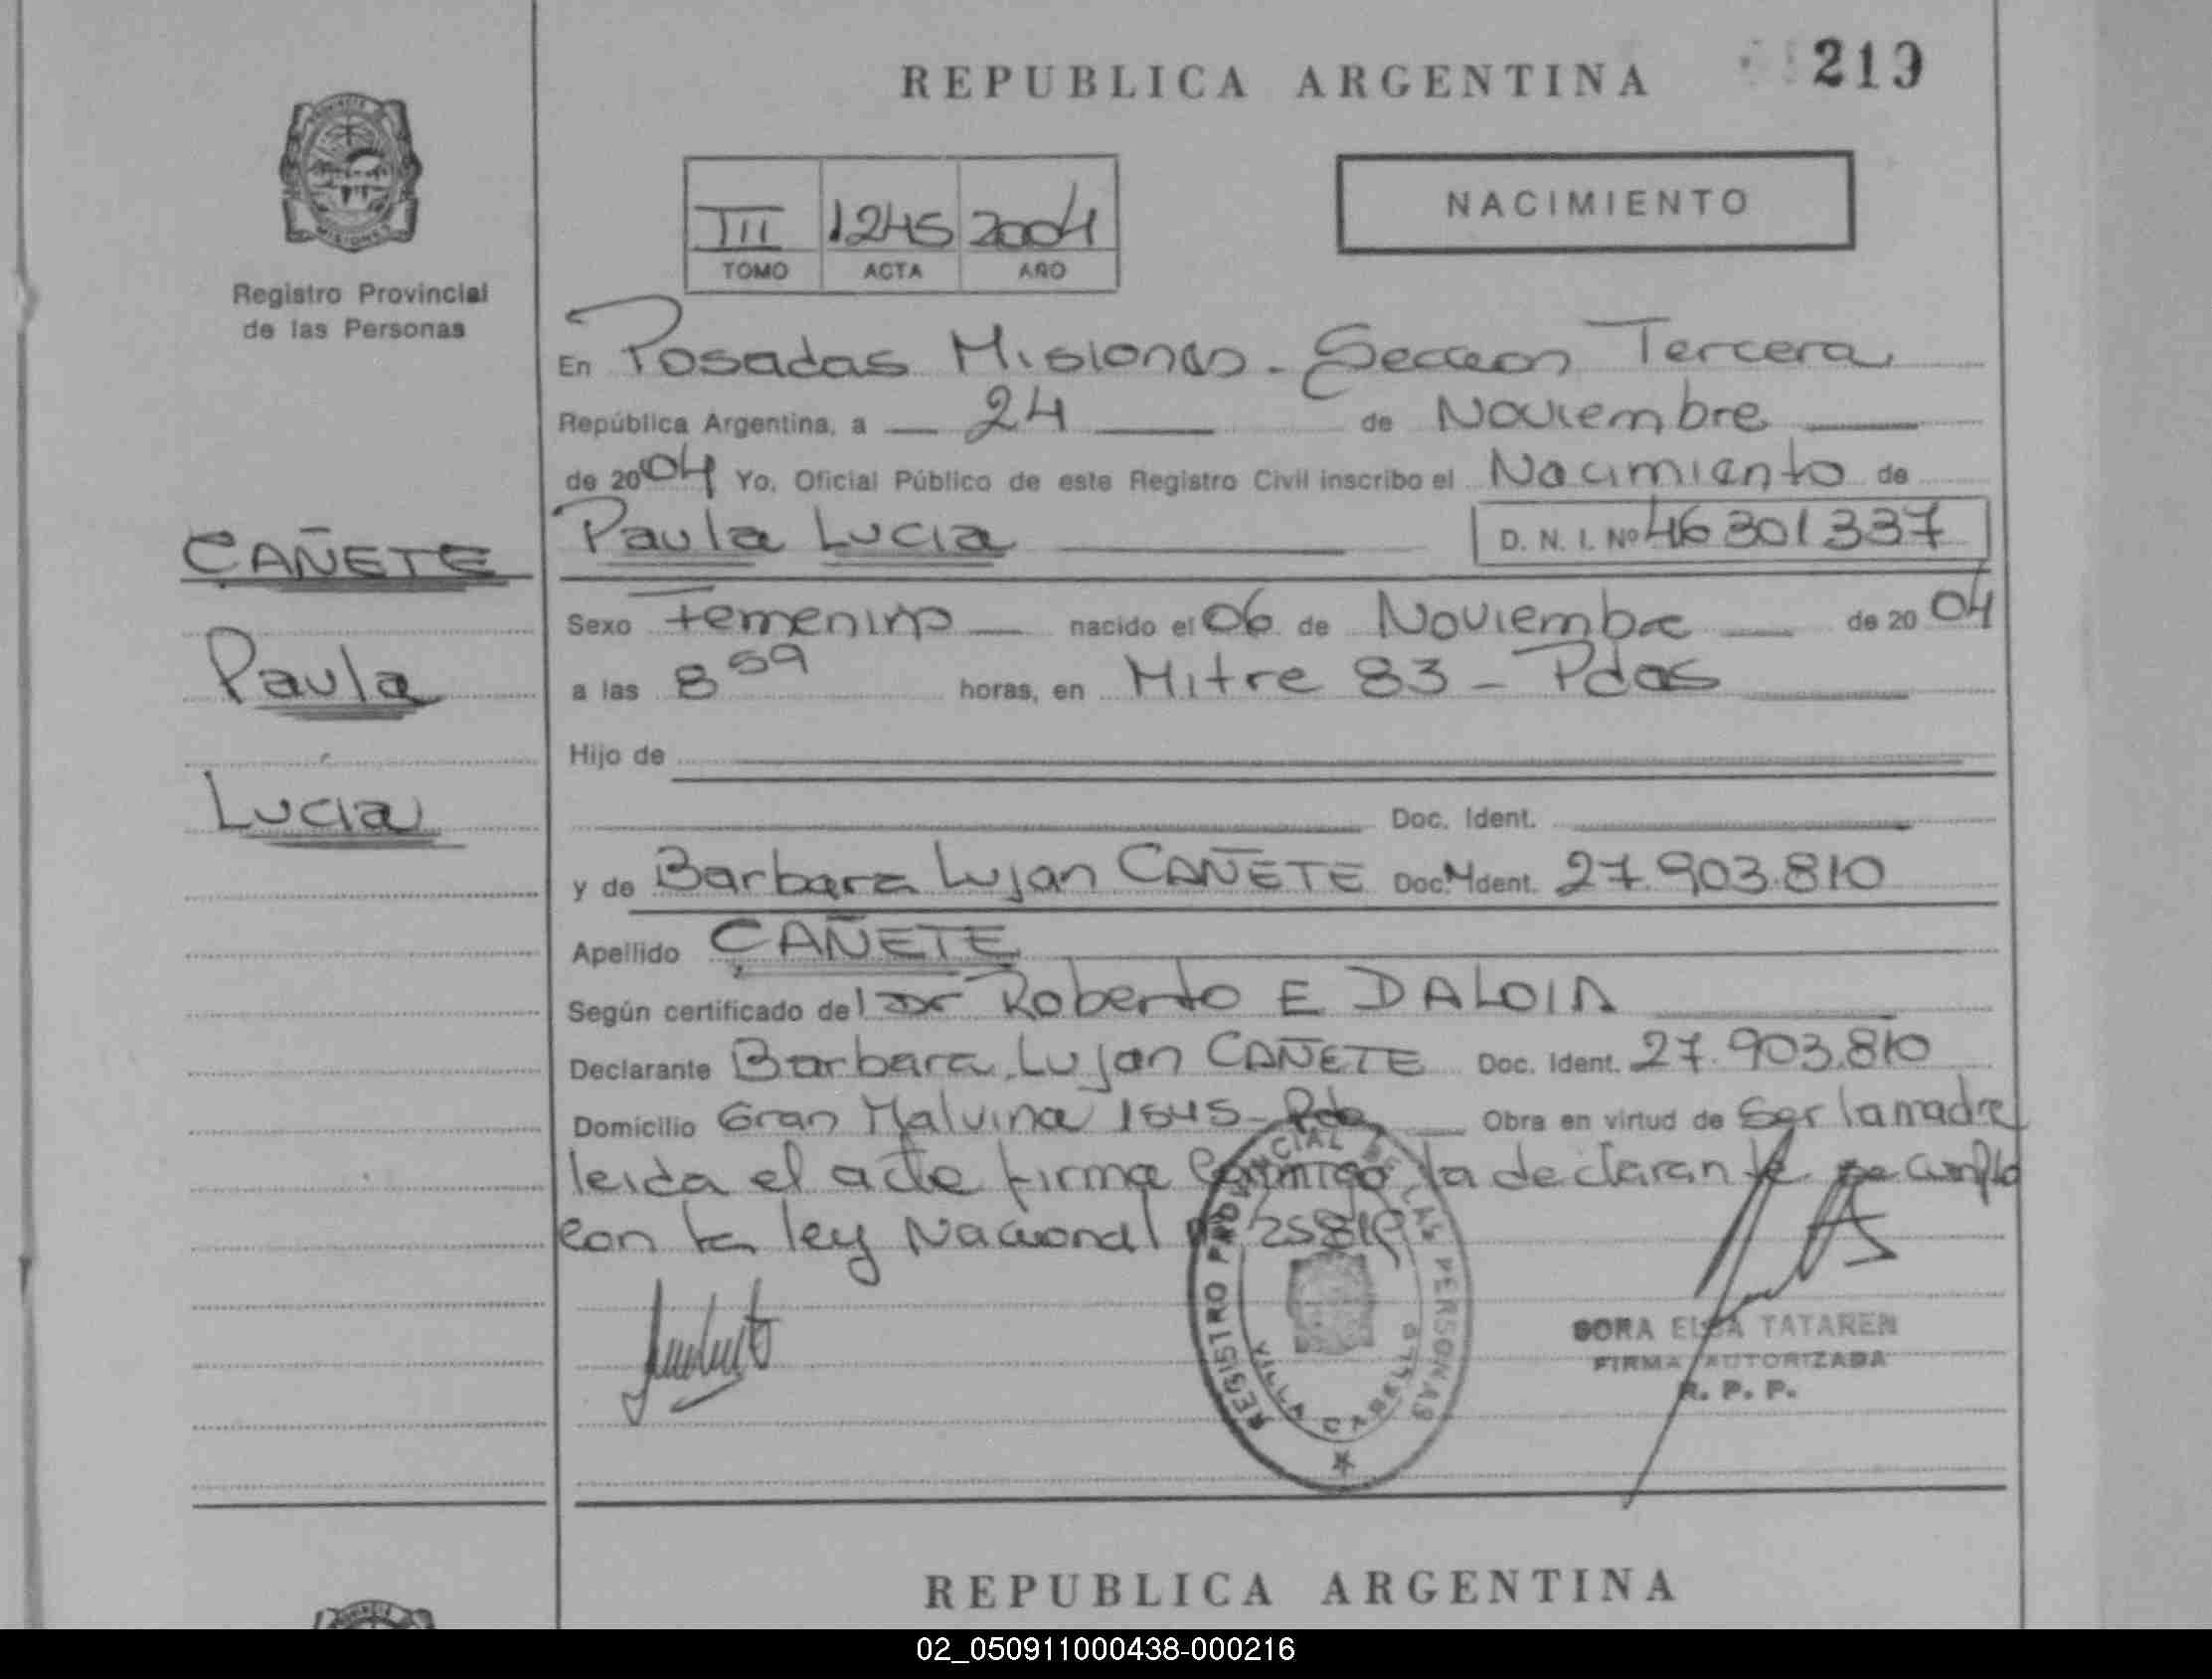 REPUBLICA ARGENTINA 219
NACIMIENTO
III 1245 2004
TOMO ACTA AÑO
Registro Provincial
de las Personas
En Posadas Misiones - Seccion Tercera
República Argentina, a 24 de Noviembre
de 2004 Yo, Oficial Público de este Registro Civil inscribo el Nacimiento de
CAÑETE
Paula Lucia D. N. I. Nº 46301337
Sexo Femenino nacido el 06 de Noviembre de 2004
Paula
a las 8 59 horas, en Mitre 83 - Pdas
Hijo de
Lucia
Doc. Ident.
y de Barbara Lujan CAÑETE Doc. Ident. 27.903.810
Apellido CAÑETE
Según certificado del Dr Roberto E DALOIA
Declarante Barbara Lujan CAÑETE Doc. Ident. 27.903.810
Domicilio Gran Malvina 1545 - Pda Obra en virtud de Ser la madre
leida el acta firma conmigo la declarante se cumplo
con la ley Nacional 25819
REGISTRO PROVINCIAL DE LAS PERSONAS
VILLA CABELLO
ELSA TATAREN
FIRMA AUTORIZADA
R. P. P.
REPUBLICA ARGENTINA
02_050911000438-000216